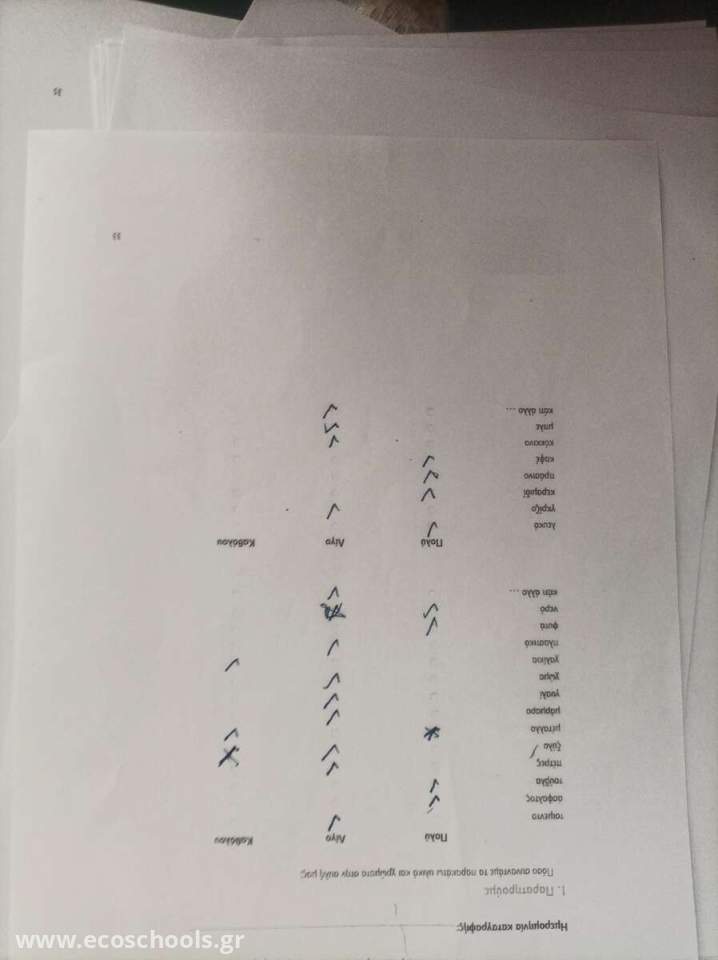 Ημερομηνία καταγραφής:
1. Παρατηρούμε
Πόσο συναντάμε τα παρακάτω υλικά και χρώματα στην αυλή μας;
Πολύ Λίγο Καθόλου
τσιμέντο
άσφαλτος
τούβλα
πέτρες
ξύλα
μέταλλο
μάρμαρο
γυαλί
χώμα
χαλίκια
πλαστικό
φυτά
νερό
κάτι άλλο ...
Πολύ Λίγο Καθόλου
λευκό
γκρίζο
κεραμιδί
πράσινο
καφέ
κόκκινο
μπλε
κάτι άλλο ...
www.ecoschools.gr